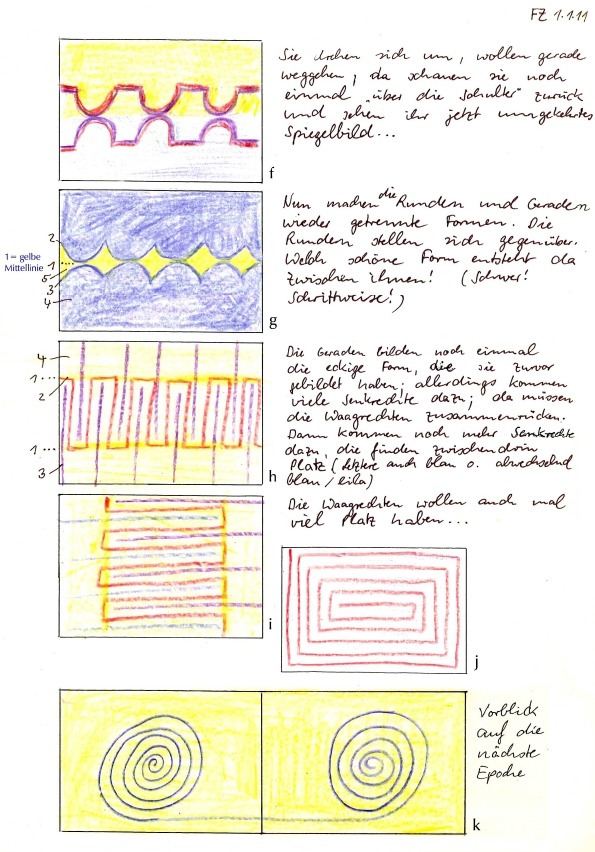 FZ 1.1.11
Sie drehen sich um, wollen gerade
weggehen, da schauen sie noch
einmal "über die Schulter" zurück
und sehen ihr jetzt umgekehrtes
Spiegelbild...
f
Nun machen die Runden und Geraden
wieder getrennte Formen. Die
Runden stellen sich gegenüber.
Welch schöne Form entsteht da
zwischen ihnen! (Schwer!
Schrittweise!)
1 = gelbe
Mittellinie
2
1
5
3
4
g
Die Geraden bilden noch einmal
die eckige Form, die sie zuvor
gebildet haben; allerdings kommen
viele Senkrechte dazu; da müssen
die Waagrechten zusammenrücken.
Dann kommen noch mehr Senkrechte
dazu, die finden zwischendrin
Platz (letztere auch blau o. abwechselnd
blau / lila)
4
1
2
1
3
h
Die Waagrechten wollen auch mal
viel Platz haben...
i
j
Vorblick
auf die
nächste
Epoche
k